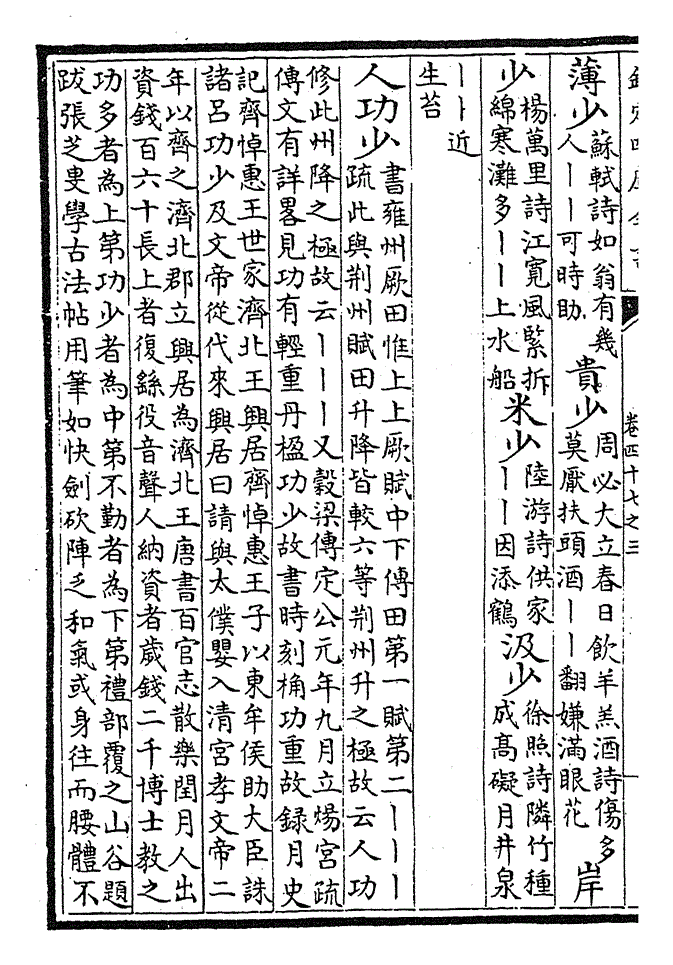 卷四十七之三
薄少
蘇軾詩如翁有幾
人丨丨可時助
貴少
周必大立春日飲羊羔酒詩傷多
莫厭扶頭酒丨丨翻嫌滿眼花
岸
少
楊萬里詩江寛風緊拆
綿寒灘多丨丨上水船
米少
陸游詩供家
丨丨因添鶴
汲少
徐照詩隣竹種
成高礙月井泉
丨丨近
生苔
人功少
書雍州厥田惟上上厥賦中下傳田第一賦第二丨丨丨
疏此與荆州賦田升降皆較六等荆州升之極故云人功
修此州降之極故云丨丨丨又穀梁傳定公元年九月立煬宮疏
傳文有詳畧見功有輕重丹楹功少故書時刻桷功重故録月史
記齊悼惠王世家濟北王興居齊悼惠王子以東牟侯助大臣誅
諸呂功少及文帝從代來興居曰請與太僕嬰入清宮孝文帝二
年以齊之濟北郡立興居為濟北王唐書百官志散樂閏月人出
資錢百六十長上者復繇役音聲人納資者歲錢二千博士教之
功多者為上第功少者為中第不勤者為下第禮部覆之山谷題
跋張芝叟學古法帖用筆如快劍砍陣乏和氣或身往而腰體不